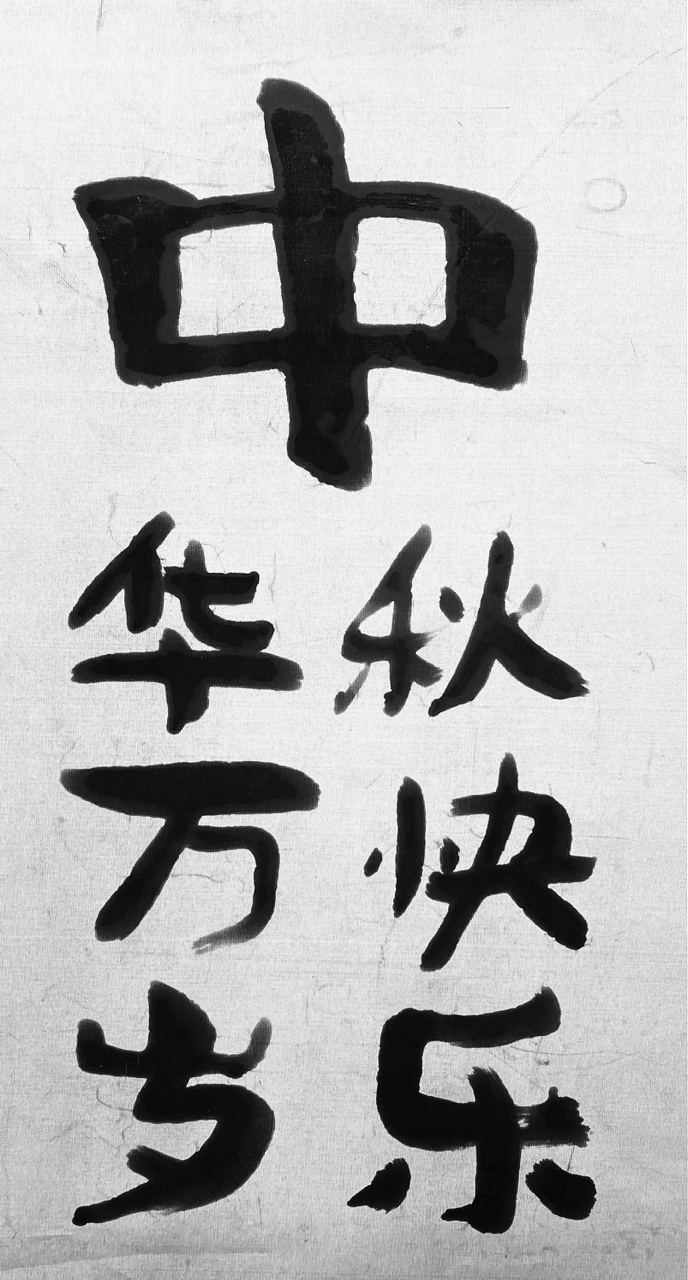 中
秋快乐
华万岁